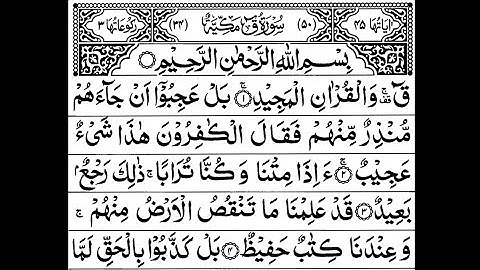 اٰیَاتُهَا ۴۵ (۵۰) سُوْرَةُ قٓ مَكِّیَّةٌ (۳۴) رُكُوْعَاتُهَا ۳
بِسْمِ اللّٰهِ الرَّحْمٰنِ الرَّحِیْمِ ۝
قٓ ۚ۫ وَالْقُرْاٰنِ الْمَجِیْدِ ۝۱ۚ بَلْ عَجِبُوْۤا اَنْ جَآءَهُمْ
مُّنْذِرٌ مِّنْهُمْ فَقَالَ الْكٰفِرُوْنَ هٰذَا شَیْءٌ
عَجِیْبٌ ۝۲ۚ ءَاِذَا مِتْنَا وَكُنَّا تُرَابًا ۚ ذٰلِكَ رَجْعٌۢ
بَعِیْدٌ ۝۳ قَدْ عَلِمْنَا مَا تَنْقُصُ الْاَرْضُ مِنْهُمْ ۚ
وَعِنْدَنَا كِتٰبٌ حَفِیْظٌ ۝۴ بَلْ كَذَّبُوْا بِالْحَقِّ لَمَّا